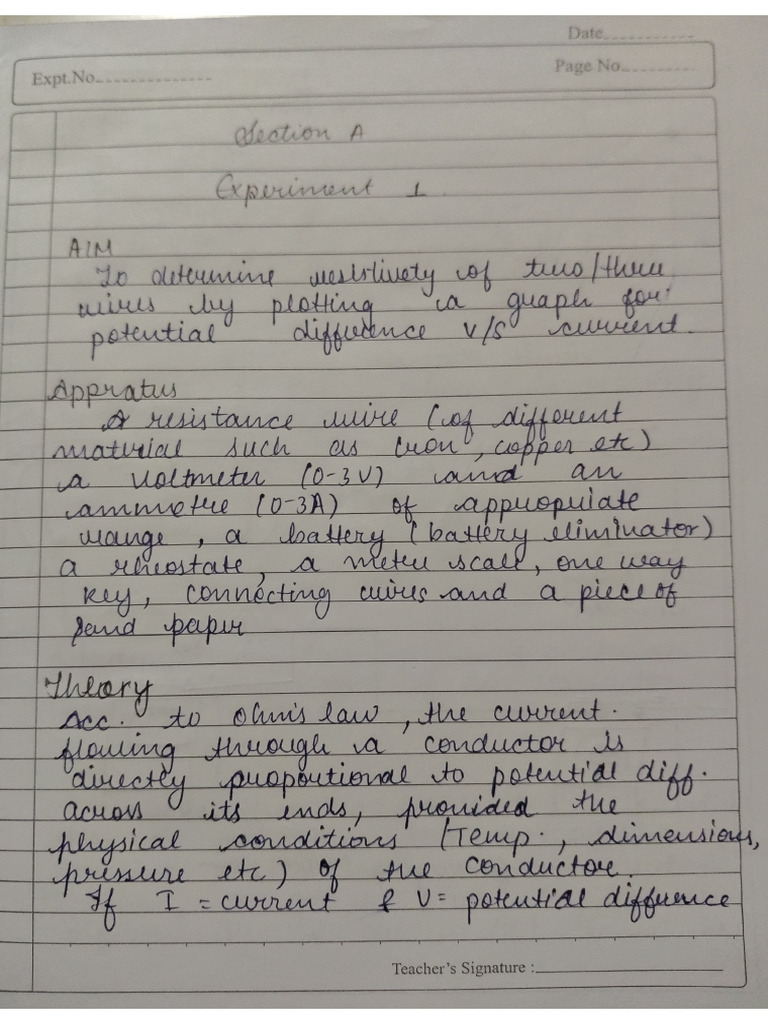 Date
Expt.No
Page No
Section A
Experiment 1
AIM
To determine resistivety of two/three
wires by plotting a graph for
potential difference v/s current.
Appratus
A resistance wire (of different
material such as iron, copper etc)
a voltmeter (0-3V) and an
ammetre (0-3A) of appropriate
range, a battery (battery eliminator)
a rheostate, a metre scale, one way
key, connecting wires and a piece of
sand paper
Theory
Acc. to ohm's law, the current
flowing through a conductor is
directly proportional to potential diff.
across its ends, provided the
physical conditions (Temp., dimensions,
pressure etc) of the conductor.
If I = current & V= potential difference
Teacher's Signature :